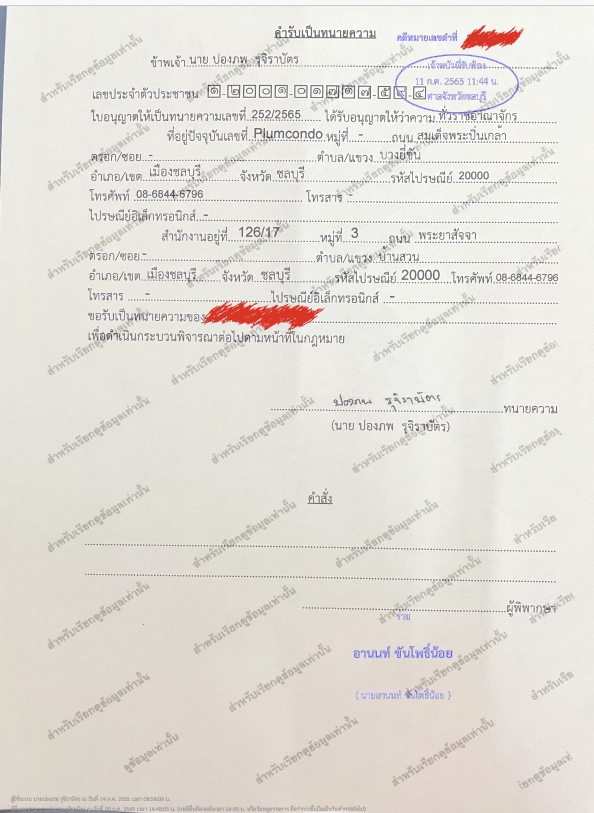 คำรับเป็นทนายความ คดีหมายเลขดำที่
ข้าพเจ้า นาย ปองภพ รุจิราบัตร
เจ้าหน้าที่รับฟ้อง
11 ก.ค. 2565 11:44 น.
ศาลจังหวัดชลบุรี
เลขประจำตัวประชาชน
ใบอนุญาตให้เป็นทนายความเลขที่ 252/2565 ได้รับอนุญาตให้ว่าความ ทั่วราชอาณาจักร
ที่อยู่ปัจจุบันเลขที่ Plumcondo หมู่ที่ - ถนน สมเด็จพระปิ่นเกล้า
ตรอก/ซอย - ตำบล/แขวง บางยี่ขัน
อำเภอ/เขต เมืองชลบุรี จังหวัด ชลบุรี รหัสไปรษณีย์ 20000
โทรศัพท์ 08-6844-6796 โทรสาร -
ไปรษณีย์อิเล็กทรอนิกส์ -
สำนักงานอยู่ที่ 126/17 หมู่ที่ 3 ถนน พระยาสัจจา
ตรอก/ซอย - ตำบล/แขวง บ้านสวน
อำเภอ/เขต เมืองชลบุรี จังหวัด ชลบุรี รหัสไปรษณีย์ 20000 โทรศัพท์ 08-6844-6796
โทรสาร - ไปรษณีย์อิเล็กทรอนิกส์ -
ขอรับเป็นทนายความของ
เพื่อดำเนินกระบวนพิจารณาต่อไปตามหน้าที่ในกฎหมาย
ปองภพ รุจิราบัตร ทนายความ
(นาย ปองภพ รุจิราบัตร)
คำสั่ง
ผู้พิพากษา
รวม
อานนท์ ขันโพธิ์น้อย
( นายอานนท์ ขันโพธิ์น้อย )
สำหรับเรียกดูข้อมูลเท่านั้น